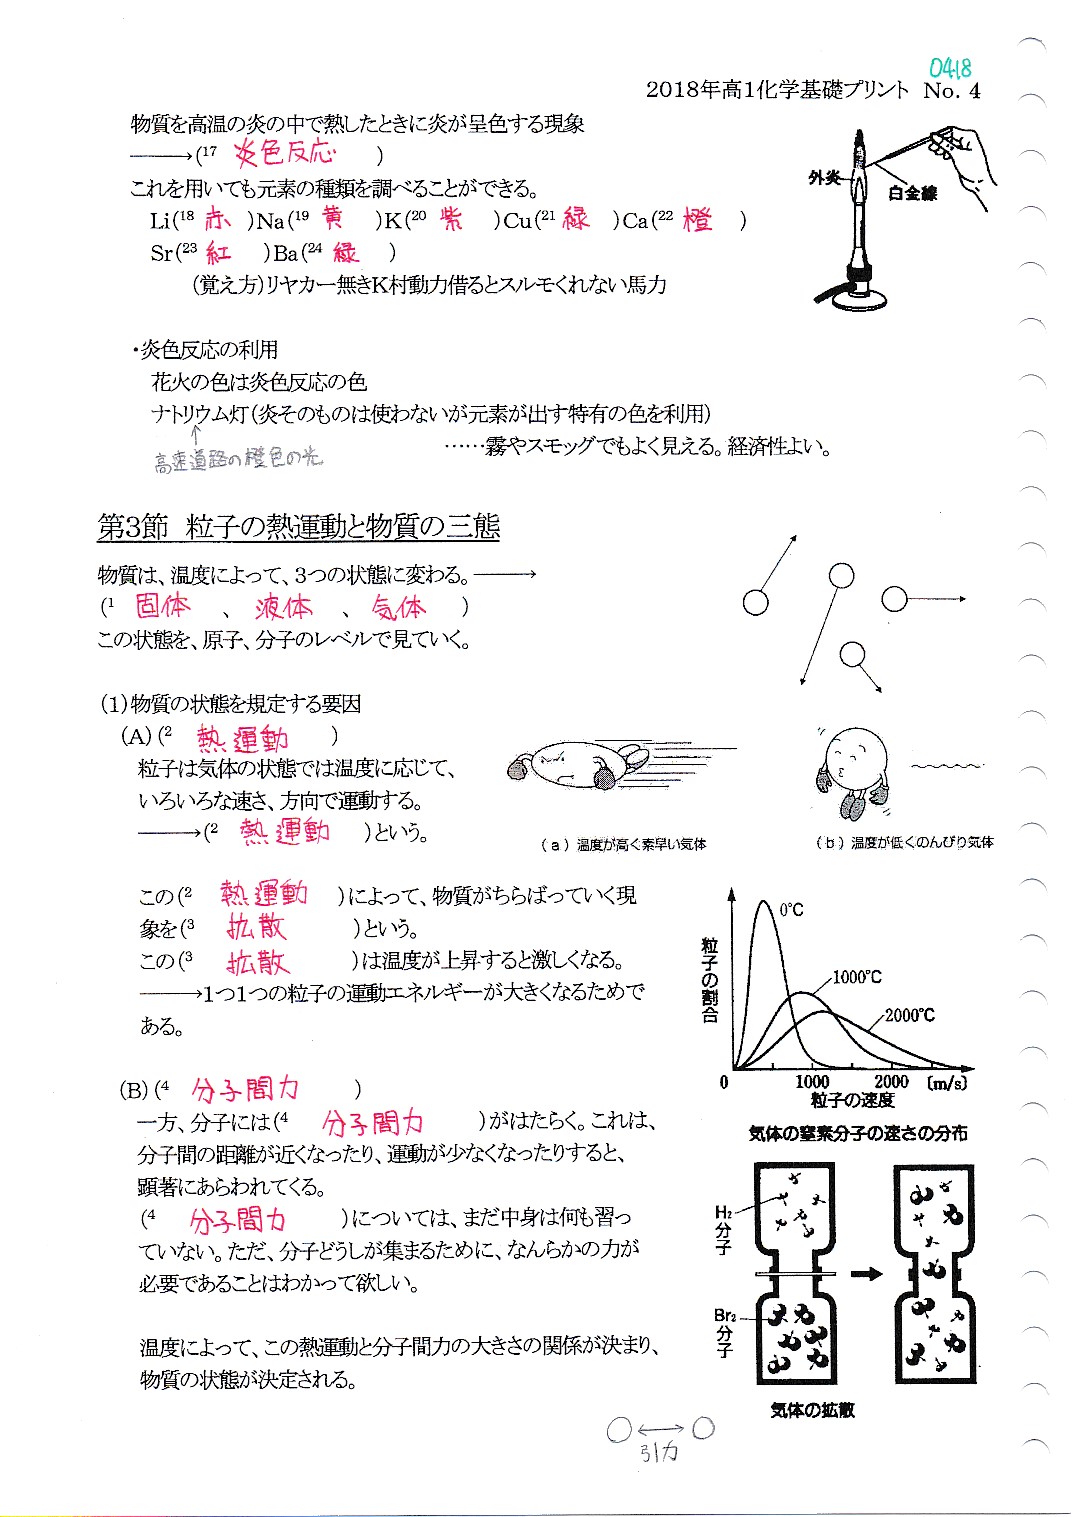 0418
2018年高1化学基礎プリント No. 4
物質を高温の炎の中で熱したときに炎が呈色する現象
———→(17 炎色反応 )
これを用いても元素の種類を調べることができる。
Li(18 赤 )Na(19 黄 )K(20 紫 )Cu(21 緑 )Ca(22 橙 )
Sr(23 紅 )Ba(24 緑 )
(覚え方)リヤカー無きK村動力借るとスルモくれない馬力
外炎
白金線
・炎色反応の利用
花火の色は炎色反応の色
ナトリウム灯(炎そのものは使わないが元素が出す特有の色を利用)
……霧やスモッグでもよく見える。経済性よい。
↑
高速道路の橙色の光
第3節 粒子の熱運動と物質の三態
物質は、温度によって、3つの状態に変わる。———→
(1 固体 、 液体 、 気体 )
この状態を、原子、分子のレベルで見ていく。
(1)物質の状態を規定する要因
(A)(2 熱運動 )
粒子は気体の状態では温度に応じて、
いろいろな速さ、方向で運動する。
———→(2 熱運動 )という。
(a)温度が高く素早い気体
(b)温度が低くのんびり気体
この(2 熱運動 )によって、物質がちらばっていく現
象を(3 拡散 )という。
この(3 拡散 )は温度が上昇すると激しくなる。
———→1つ1つの粒子の運動エネルギーが大きくなるためで
ある。
粒子の割合
0℃
1000℃
2000℃
0 1000 2000 (m/s)
粒子の速度
気体の窒素分子の速さの分布
(B)(4 分子間力 )
一方、分子には(4 分子間力 )がはたらく。これは、
分子間の距離が近くなったり、運動が少なくなったりすると、
顕著にあらわれてくる。
(4 分子間力 )については、まだ中身は何も習っ
ていない。ただ、分子どうしが集まるために、なんらかの力が
必要であることはわかって欲しい。
温度によって、この熱運動と分子間力の大きさの関係が決まり、
物質の状態が決定される。
H2
分子
Br2
分子
気体の拡散
引力